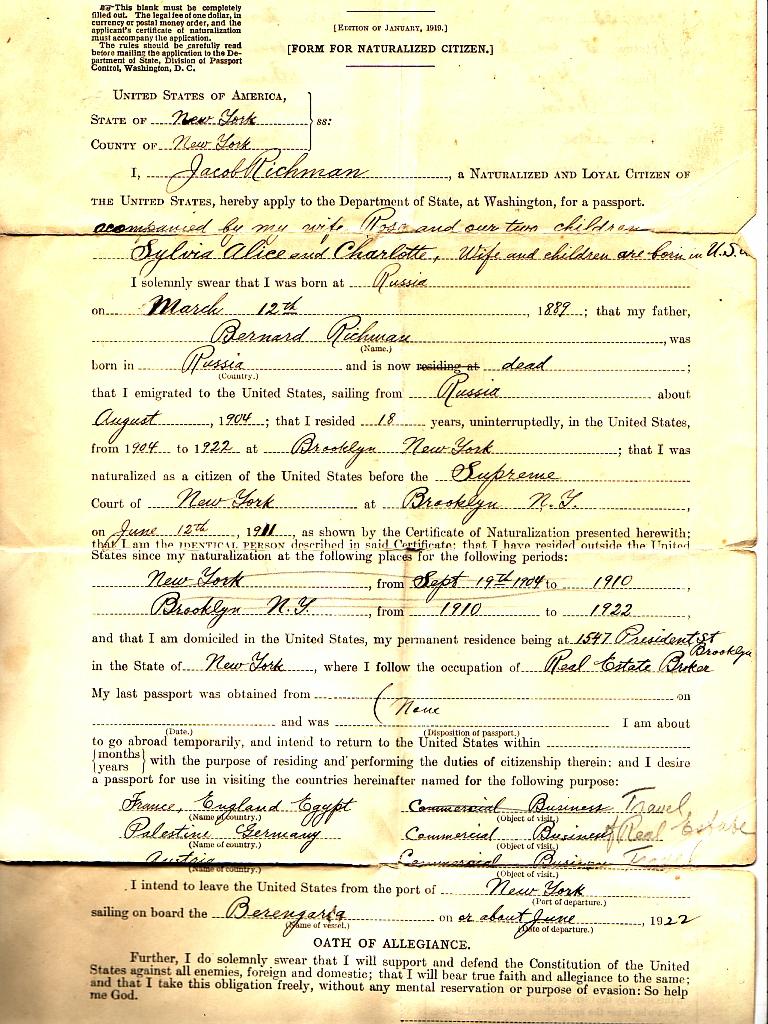 ☞This blank must be completely
filled out. The legal fee of one dollar, in
currency or postal money order, and the
applicant's certificate of naturalization
must accompany the application.
The rules should be carefully read
before mailing the application to the De-
partment of State, Division of Passport
Control, Washington, D. C.
[EDITION OF JANUARY, 1919.]
[FORM FOR NATURALIZED CITIZEN.]
UNITED STATES OF AMERICA,
STATE OF New York
ss:
COUNTY OF New York
I, Jacob Richman, a NATURALIZED AND LOYAL CITIZEN OF
THE UNITED STATES, hereby apply to the Department of State, at Washington, for a passport.
acompanied by my wife Rose and our two children
Sylvia Alice and Charlotte, Wife and children are born in U.S.
I solemnly swear that I was born at Russia
on March 12th, 1889; that my father,
Bernard Richman, was
(Name.)
born in Russia and is now residing at dead;
(Country.)
that I emigrated to the United States, sailing from Russia about
August, 1904; that I resided 18 years, uninterruptedly, in the United States,
from 1904 to 1922 at Brooklyn New York; that I was
naturalized as a citizen of the United States before the Supreme
Court of New York at Brooklyn N.Y.,
on June 12th, 1911, as shown by the Certificate of Naturalization presented herewith;
that I am the IDENTICAL PERSON described in said Certificate; that I have resided outside the United
States since my naturalization at the following places for the following periods:
New York, from Sept 19th 1904 to 1910,
Brooklyn N.Y., from 1910 to 1922,
and that I am domiciled in the United States, my permanent residence being at 1547 President St
Brooklyn
in the State of New York, where I follow the occupation of Real Estate Broker
My last passport was obtained from on
None
and was I am about
(Date.) (Disposition of passport.)
to go abroad temporarily, and intend to return to the United States within
{months years} with the purpose of residing and performing the duties of citizenship therein; and I desire
a passport for use in visiting the countries hereinafter named for the following purpose:
France, England Egypt Commercial Business Travel
(Name of country.) (Object of visit.)
Palestine Germany Commercial Business of Real Estate
(Name of country.) (Object of visit.)
Austria Commercial Business Travel
(Name of country.) (Object of visit.)
I intend to leave the United States from the port of New York
(Port of departure.)
sailing on board the Berengaria on or about June, 1922
(Name of vessel.) (Date of departure.)
OATH OF ALLEGIANCE.
Further, I do solemnly swear that I will support and defend the Constitution of the United
States against all enemies, foreign and domestic; that I will bear true faith and allegiance to the same;
and that I take this obligation freely, without any mental reservation or purpose of evasion: So help
me God.